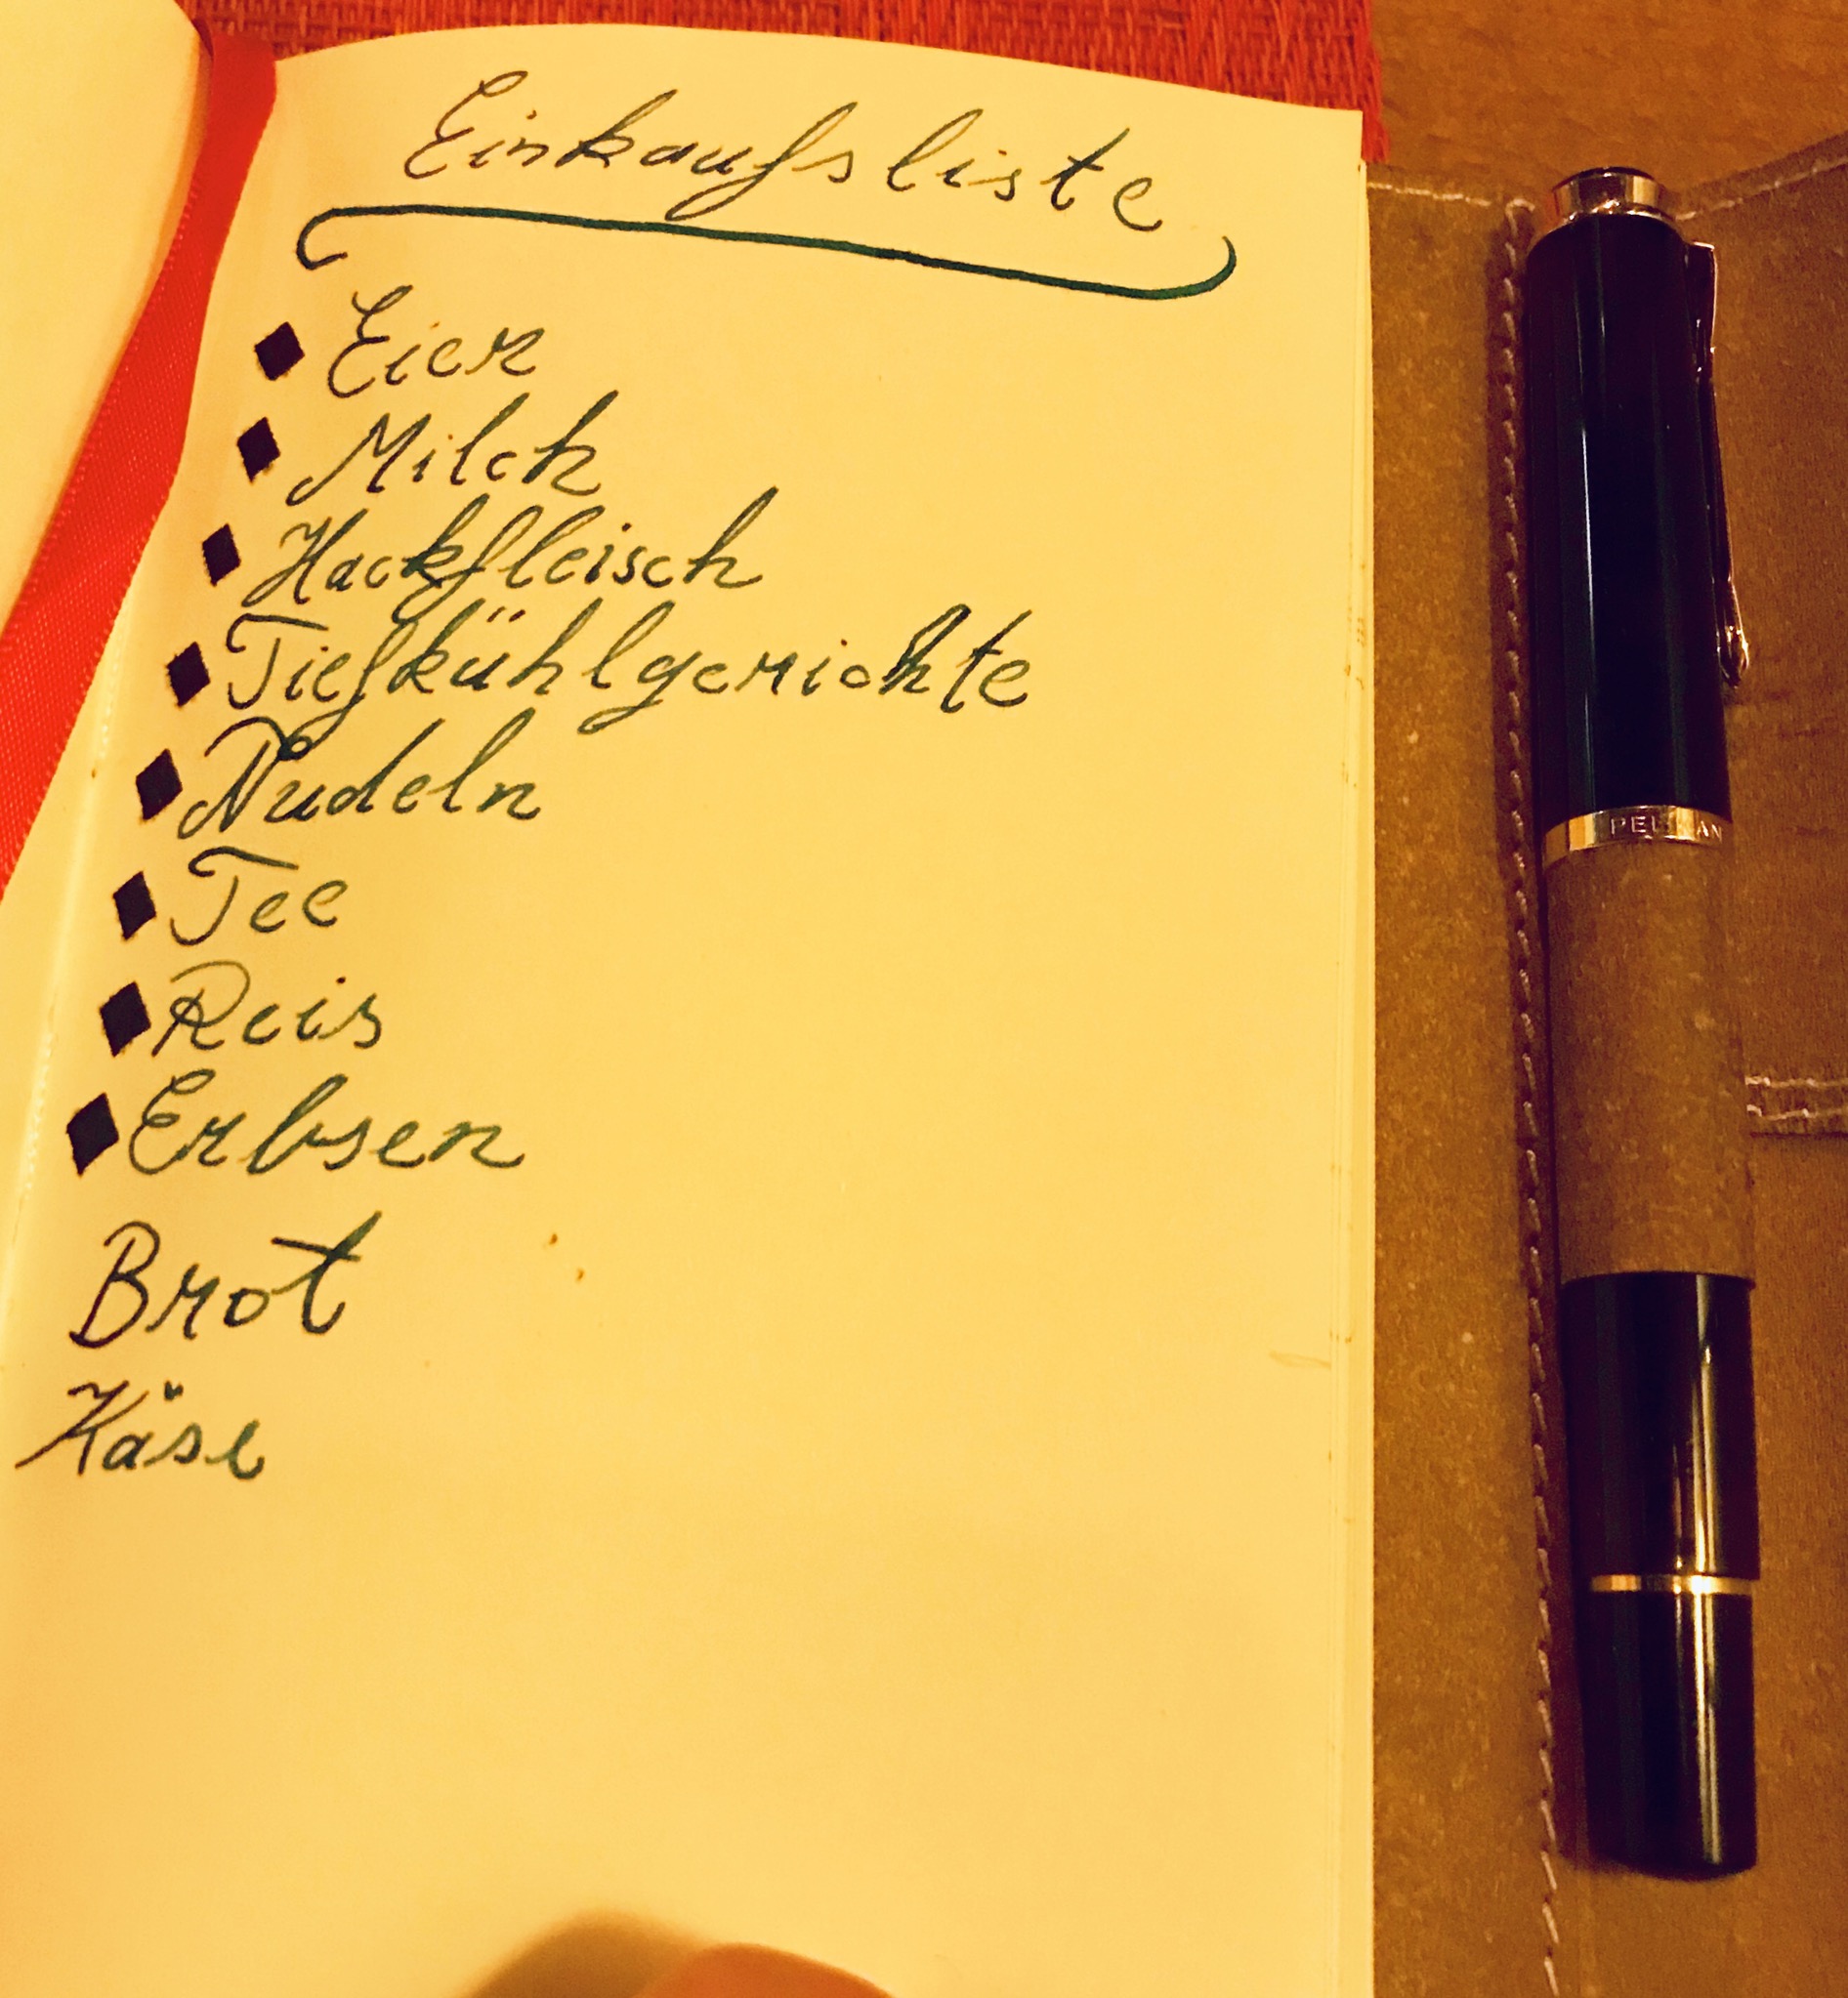 Einkaufsliste
◆ Eier
◆ Milch
◆ Hackfleisch
◆ Tiefkühlgerichte
◆ Nudeln
◆ Tee
◆ Reis
◆ Erbsen
Brot
Käse